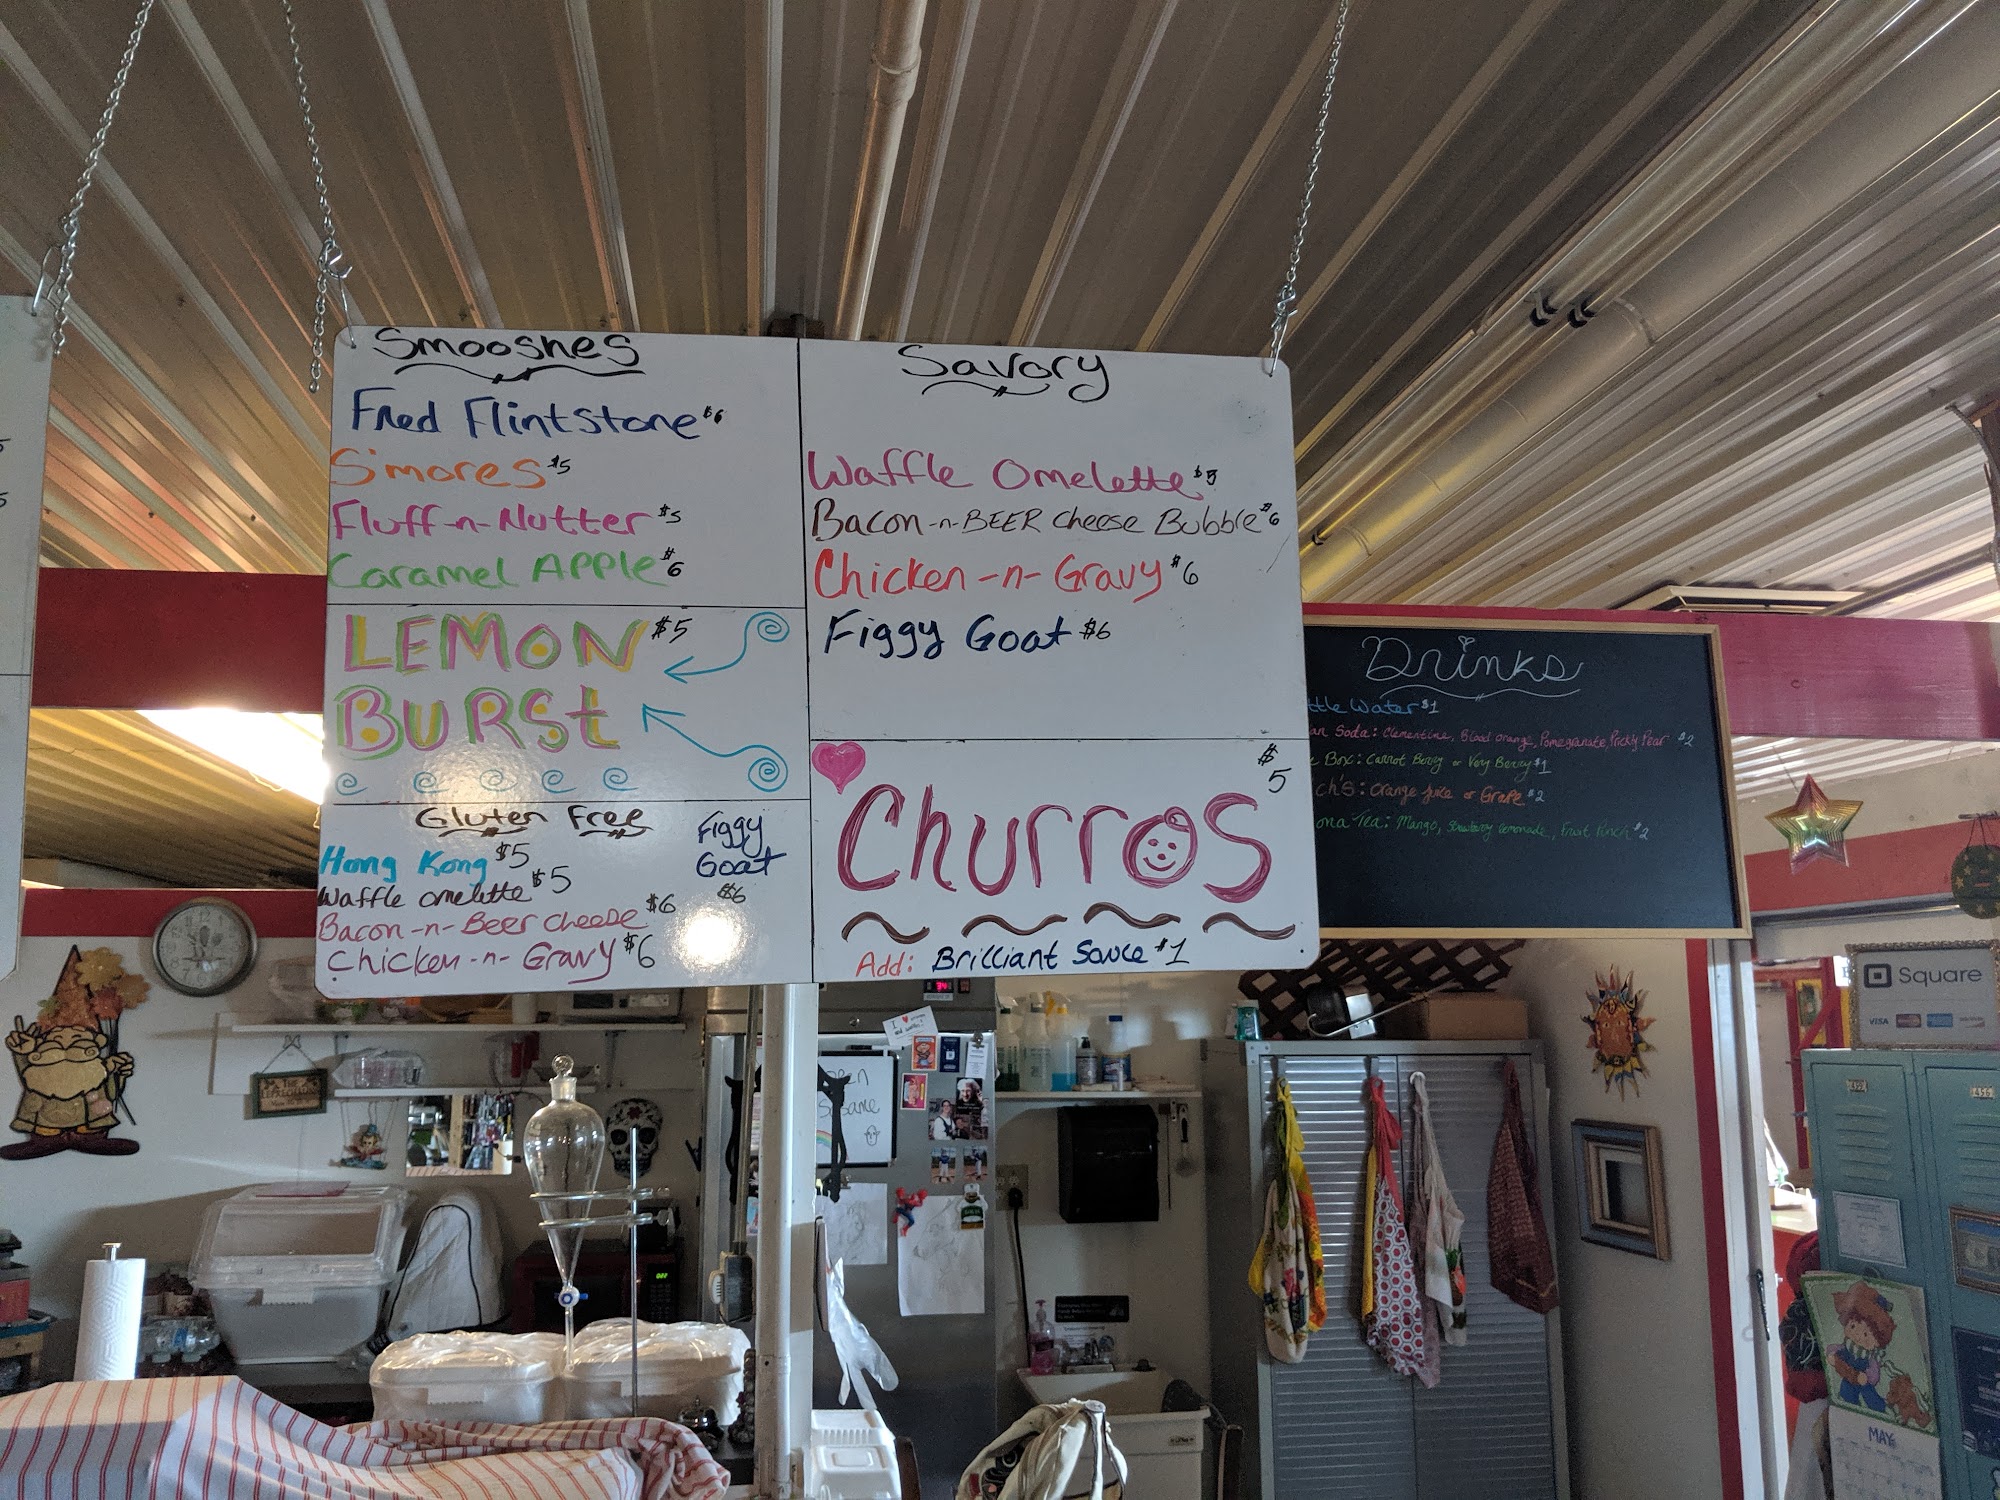 Smooshes
Fred Flintstone $6
S'mores $5
Fluff-n-Nutter $5
Caramel Apple $6
LEMON $5
BURSt
Gluten Free
Hong Kong $5
Waffle omelette $5
Bacon-n-Beer cheese $6
Chicken-n-Gravy $6
Figgy
Goat
$6
Savory
Waffle Omelette $5
Bacon-n-BEER cheese Bubble $6
Chicken-n-Gravy $6
Figgy Goat $6
$5
Churros
Add: Brilliant Sauce $1
Drinks
ttle Water $1
an Soda: Clementine, Blood orange, Pomegranate, Prickly Pear $2
Box: Carrot Berry or Very Berry $1
ch's: Orange Juice or Grape $2
ona Tea: Mango, Strawberry lemonade, Fruit Punch $2
Square
VISA
499
456
MAY